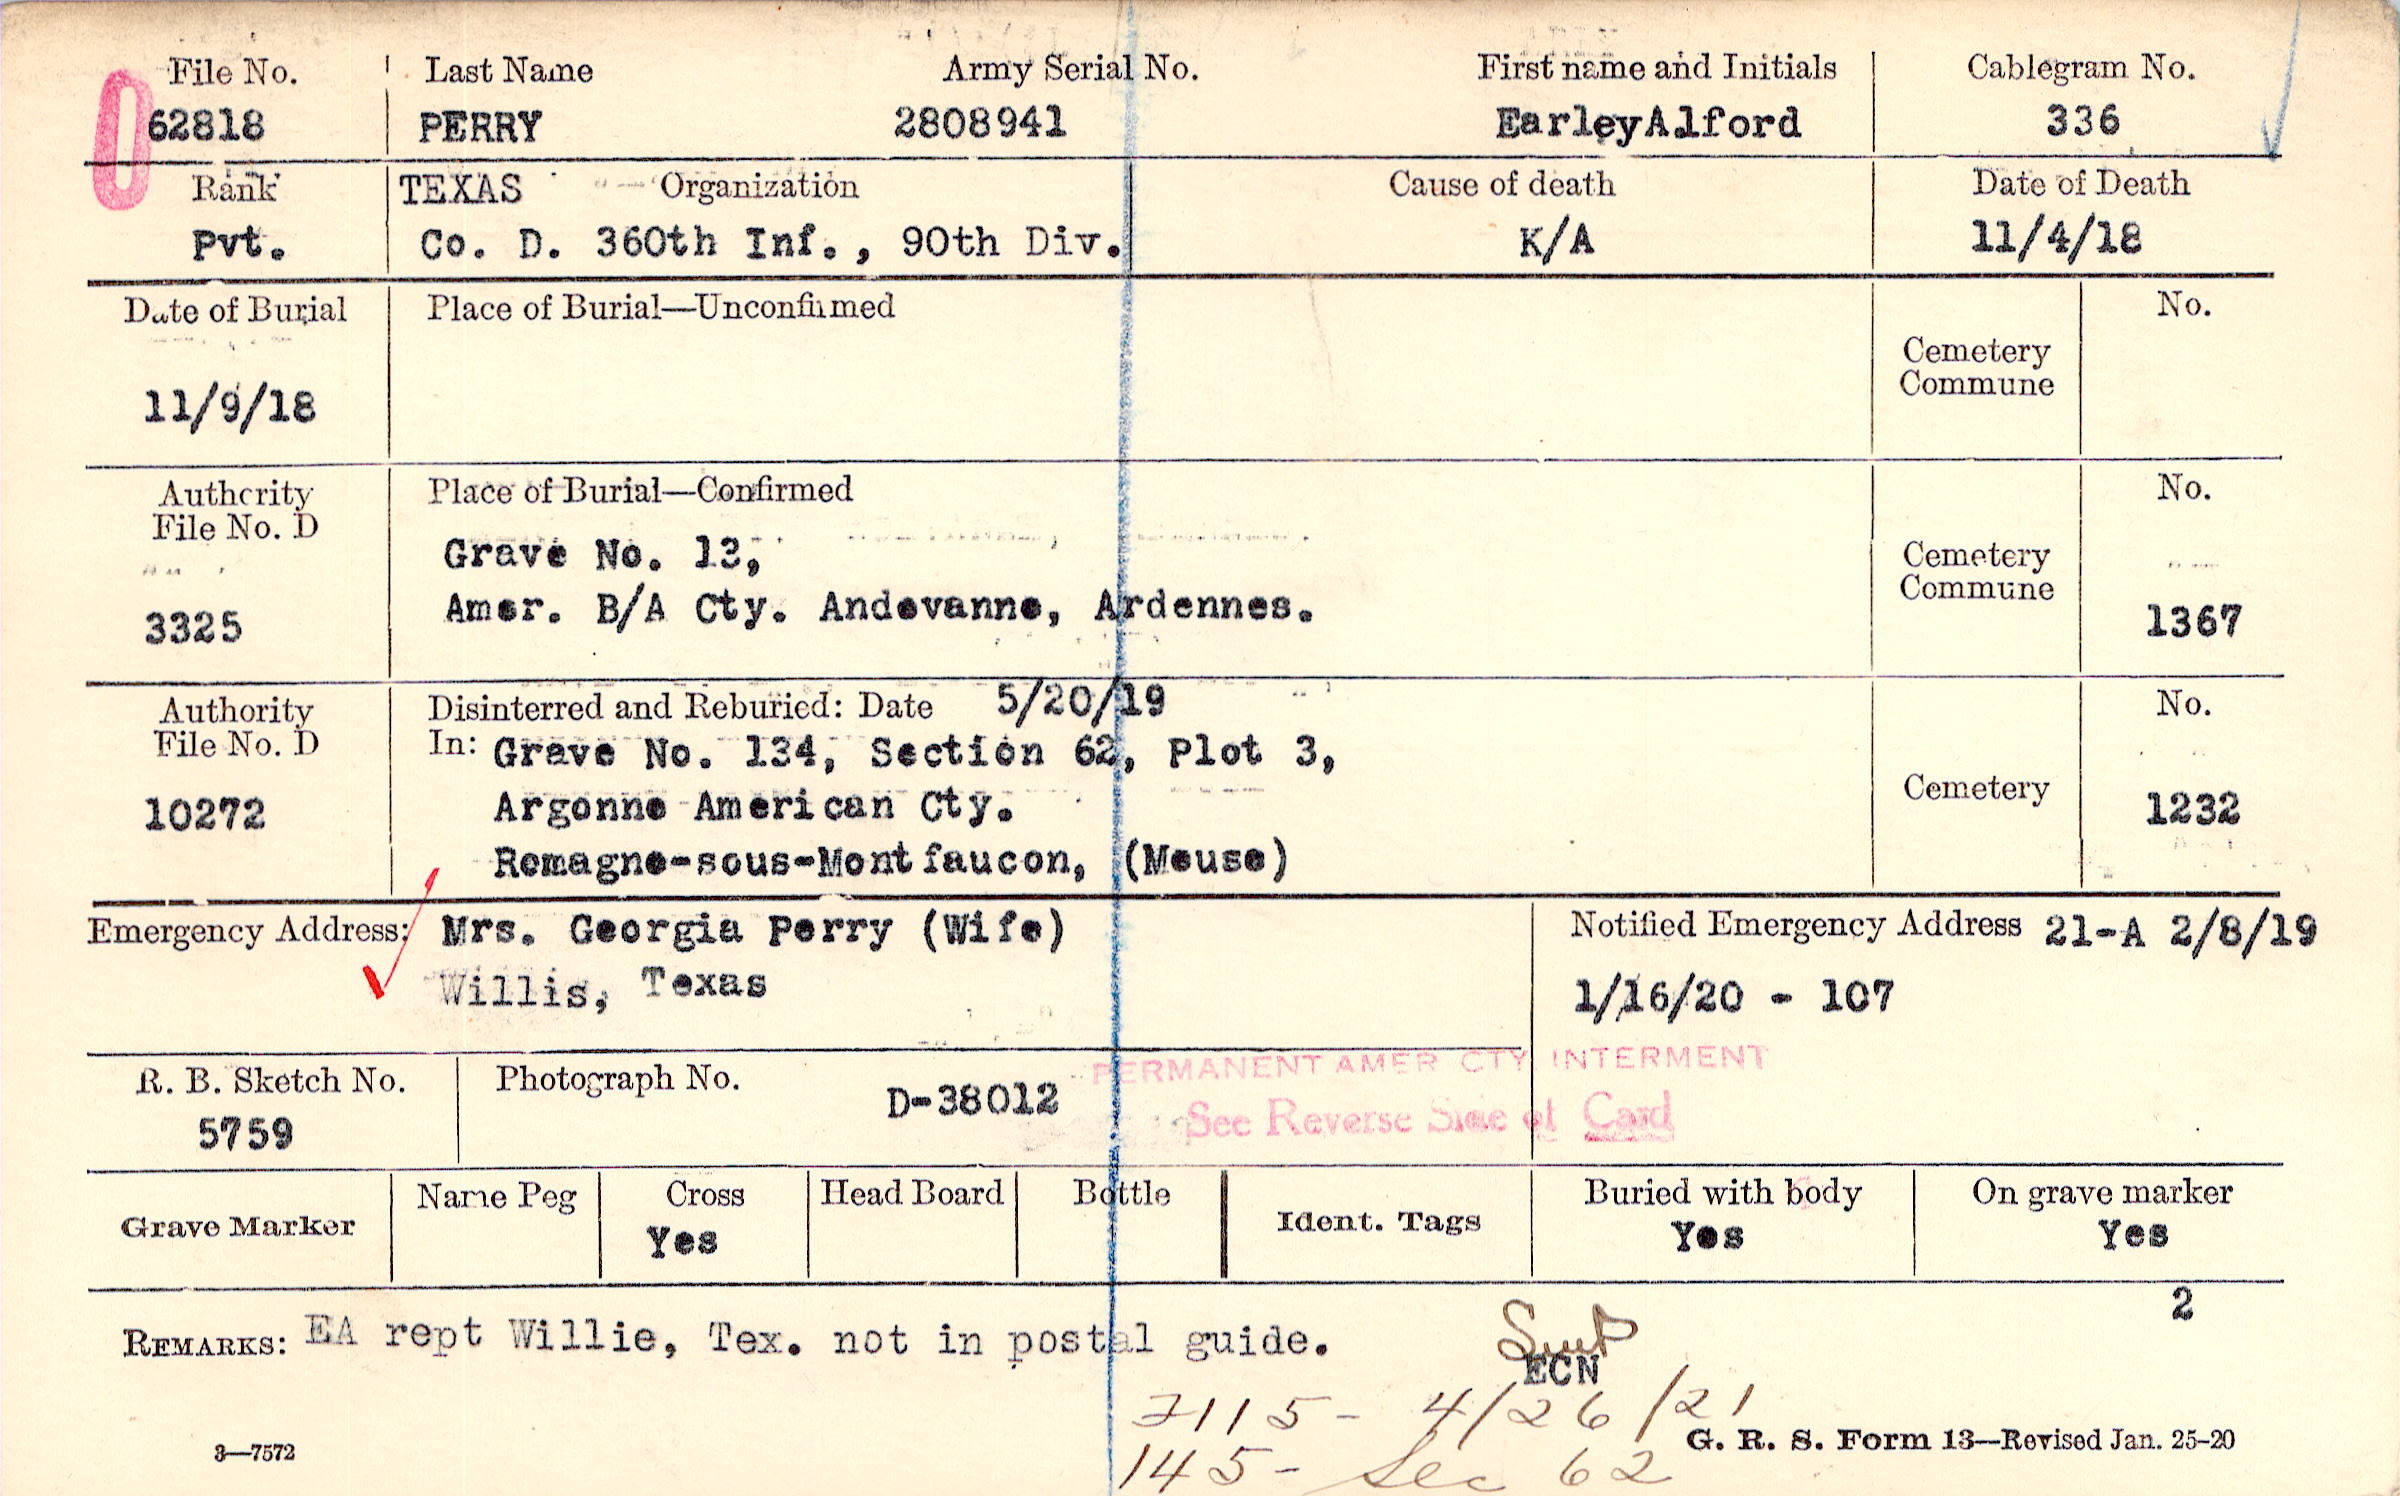 File No. Last Name Army Serial No. First name and Initials Cablegram No.
0 62818 PERRY 2808941 EarleyAlford 336
Rank TEXAS Organization Cause of death Date of Death
Pvt. Co. D. 360th Inf., 90th Div. K/A 11/4/18
Date of Burial Place of Burial—Unconfirmed No.
Cemetery
Commune
11/9/18
Authority Place of Burial—Confirmed No.
File No. D
Grave No. 13, Cemetery
Commune
3325 Amer. B/A Cty. Andevanne, Ardennes. 1367
Authority Disinterred and Reburied: Date 5/20/19 No.
File No. D In: Grave No. 134, Section 62, Plot 3,
Cemetery
10272 Argonne American Cty. 1232
Romagne-sous-Montfaucon, (Meuse)
Emergency Address: Mrs. Georgia Perry (Wife) Notified Emergency Address 21-A 2/8/19
Willis, Texas 1/16/20 - 107
PERMANENT AMER CTY INTERMENT
R. B. Sketch No. Photograph No. D-38012
See Reverse Side of Card
5759
Name Peg Cross Head Board Bottle Buried with body On grave marker
Grave Marker Yes Ident. Tags Yes Yes
2
REMARKS: EA rept Willie, Tex. not in postal guide.
ECN
7115- 4/26/21
3—7572 G. R. S. Form 13—Revised Jan. 25-20
145- Sec 62